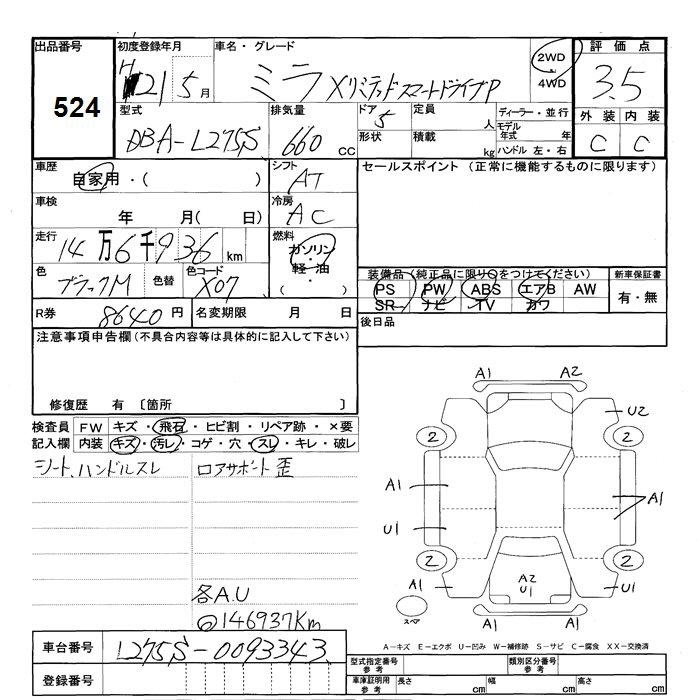 出品番号 初度登録年月 車名・グレード 2WD 4WD 評価点
524 H21 5月 ミラ XリミテッドスマートドライブP 3.5
型式 排気量 ドア 定員 人 ディーラー・並行 外装 内装
DBA-L275S 660 cc 5 形状 積載 kg モデル年式 年 ハンドル 左・右 C C
車歴 自家用・( ) シフト AT セールスポイント (正常に機能するものに限ります)
車検 年 月( 日) 冷房 AC
走行 14万6千936km 燃料 ガソリン・軽・油・( )
色 ブラックM 色替 色コード X07
装備品(純正品に限り○をつけてください) 新車保証書
PS PW ABS エアB AW 有・無
SR ナビ TV カワ
R券 8640円 名変期限 月 日 後日品
注意事項申告欄(不具合内容等は具体的に記入して下さい)
修復歴 有 〔箇所 〕
検査員 FW キズ・飛石・ヒビ割・リペア跡・×要
記入欄 内装 キズ・汚レ・コゲ・穴・スレ・キレ・破レ
シート、ハンドルスレ ロアサポート歪
各A.U
@146937Km
A1 A2
U2
2 2
A1 A1
U1
2 2
A1 A2 U1 U1
スペア A1 A1
A－キズ E－エクボ U－凹み W－補修跡 S－サビ C－腐食 XX－交換済
車台番号 L275S-0093343
登録番号
型式指定番号 参考 類別区分番号 参考
車庫証明用 参考 長さ cm 幅 cm 高さ cm